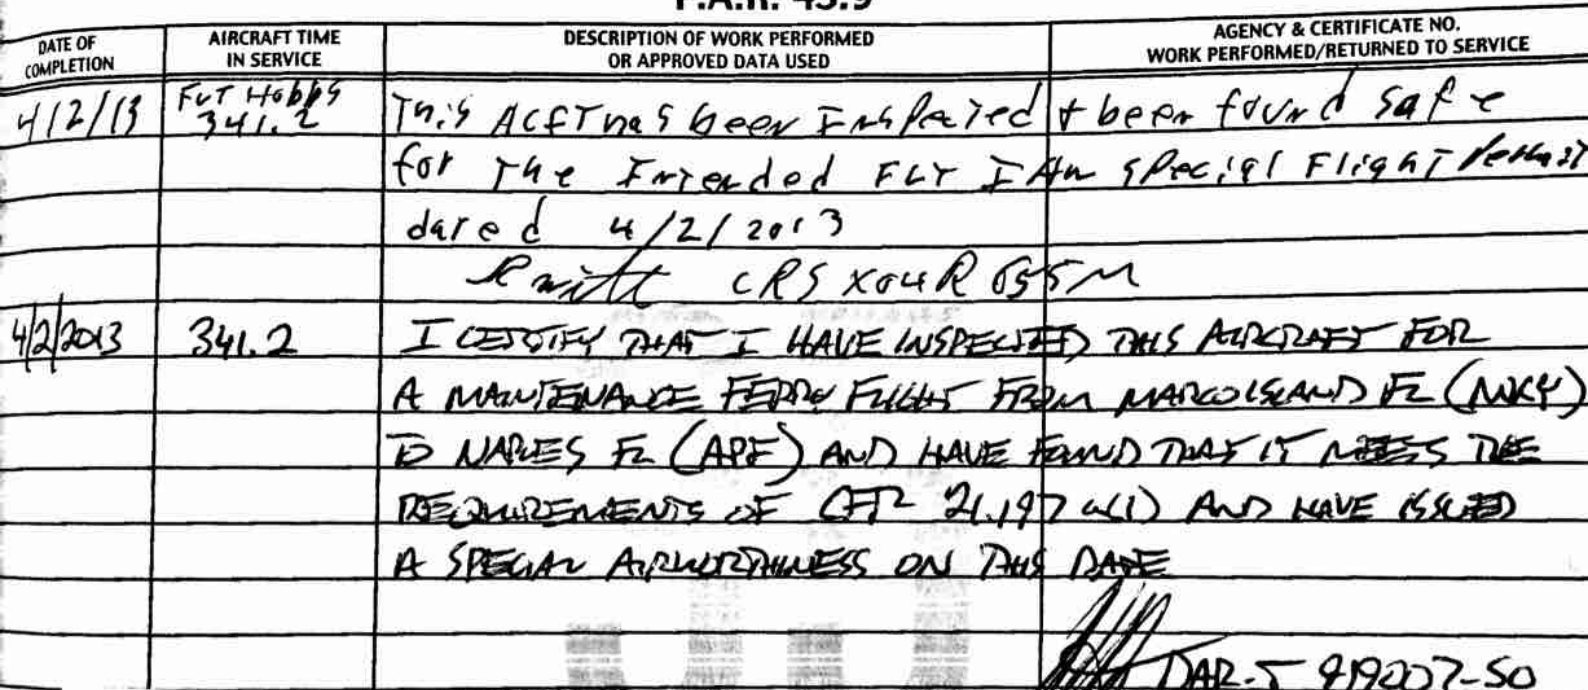 F.A.R. 43.9
DATE OF COMPLETION
AIRCRAFT TIME IN SERVICE
DESCRIPTION OF WORK PERFORMED OR APPROVED DATA USED
AGENCY & CERTIFICATE NO. WORK PERFORMED/RETURNED TO SERVICE
4/2/13 FLT Hobbs 341.2 This Acft has been Inspected & been found safe
for The Intended FLT IAW special Flight Permit
dated 4/2/2013
CRS X04R055M
4/2/2013 341.2 I CERTIFY THAT I HAVE INSPECTED THIS AIRCRAFT FOR
A MAINTENANCE FERRY FLIGHT FROM MARCO ISLAND FL (MKY)
TO NAPLES FL (APF) AND HAVE FOUND THAT IT MEETS THE
REQUIREMENTS OF CFR 21.197 a(1) AND HAVE ISSUED
A SPECIAL AIRWORTHINESS ON THIS DATE
DAR-T